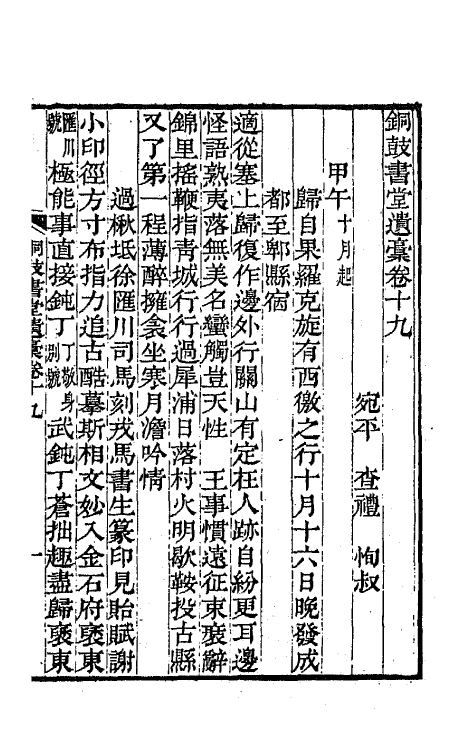 銅鼓書堂遺稾卷十九
宛平　查禮　恂叔
甲午十月起
歸自果羅克旋有西徼之行十月十六日晚發成
都至郫縣宿
適從塞上歸復作邊外行關山有定枉人跡自紛更耳邊
怪語熟夷落無美名蠻觸豈天性　王事慣遠征束裝辭
錦里搖鞭指青城行行過犀浦日落村火明歇鞍投古縣
又了第一程薄醉擁衾坐寒月澹吟情
過楸坻徐匯川司馬刻戎馬書生篆印見貽賦謝
小印徑方寸布指力追古酷摹斯相文妙入金石府褎東
匯川號極能事直接鈍丁丁敬身別號武鈍丁蒼拙趣盡歸褎東
銅鼓書堂遺稾卷十九
一